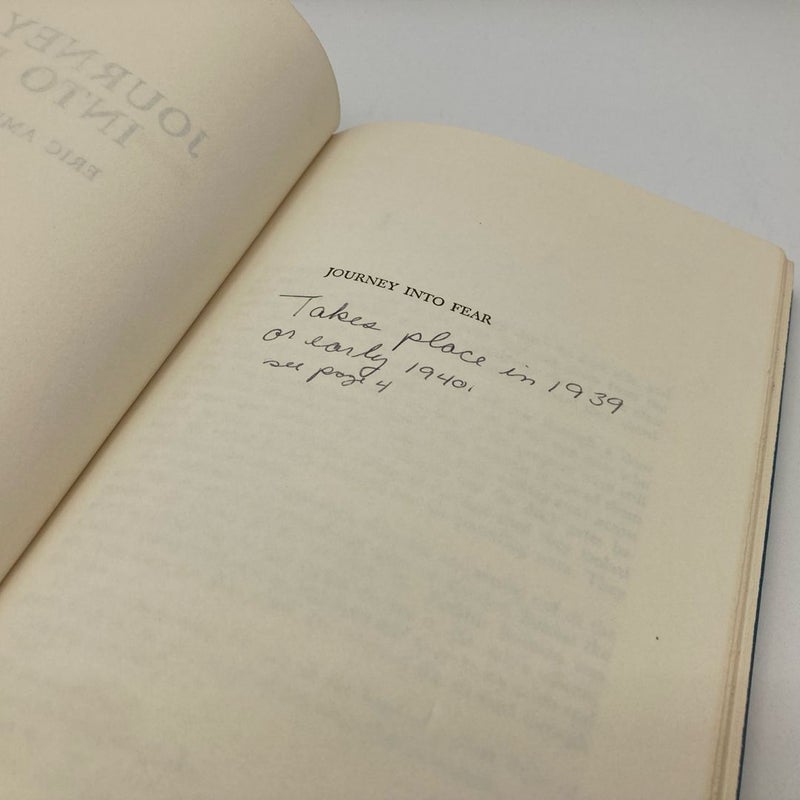 JOURNEY
INTO
ERIC
JOURNEY INTO FEAR
Takes place in 1939
or early 1940.
see page 4